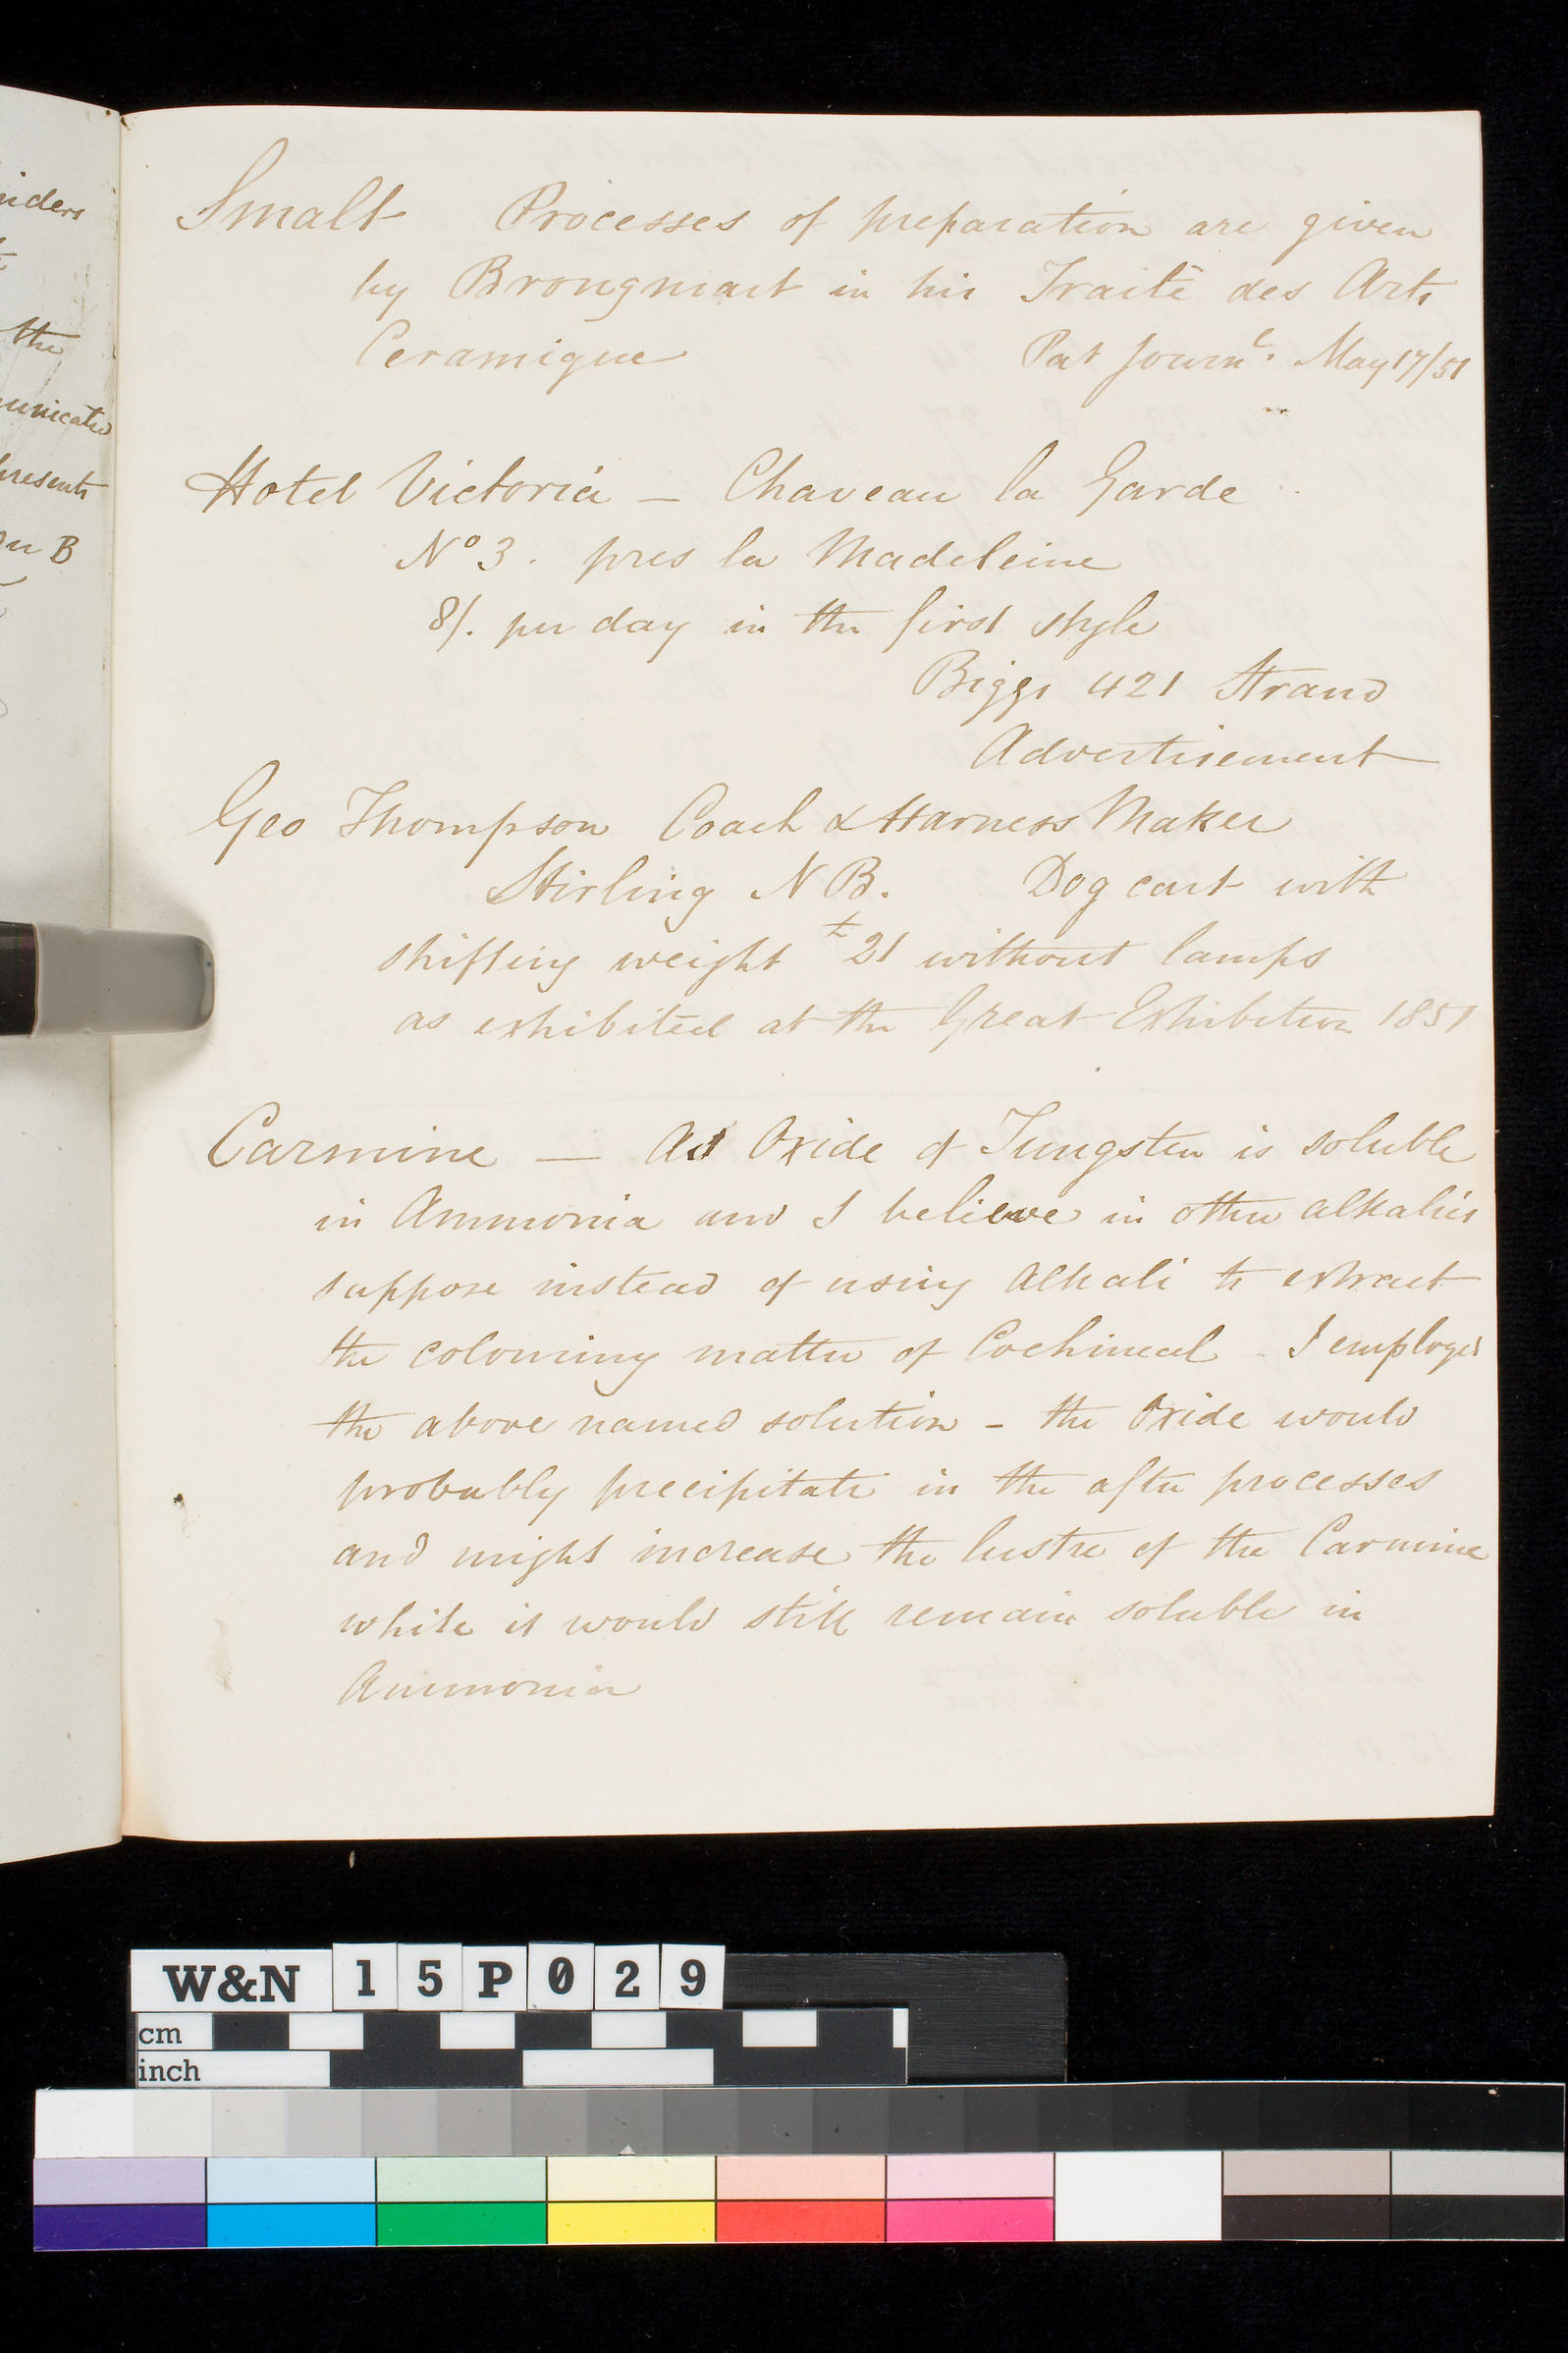 Smalt Processes of preparation are given
by Brongniart in his Traité des Arts
Ceramique Pat Journl. May 17/51
Hotel Victoria — Chaveau la Garde
No 3. pres la Madeleine
8/. per day in the first style
Biggs 421 Strand
Advertisement
Geo Thompson Coach & Harness Maker
Stirling N B. Dog cart with
shifting weight £21 without lamps
as exhibited at the Great Exhibition 1851
Carmine — As Oxide of Tungsten is soluble
in Ammonia and I believe in other alkalies
suppose instead of using Alkali to extract
the colouring matter of Cochineal - I employed
the above named solution - the Oxide would
probably precipitate in the after processes
and might increase the lustre of the Carmine
while it would still remain soluble in
Ammonia
the
presents
B
W&N 15P029
cm
inch